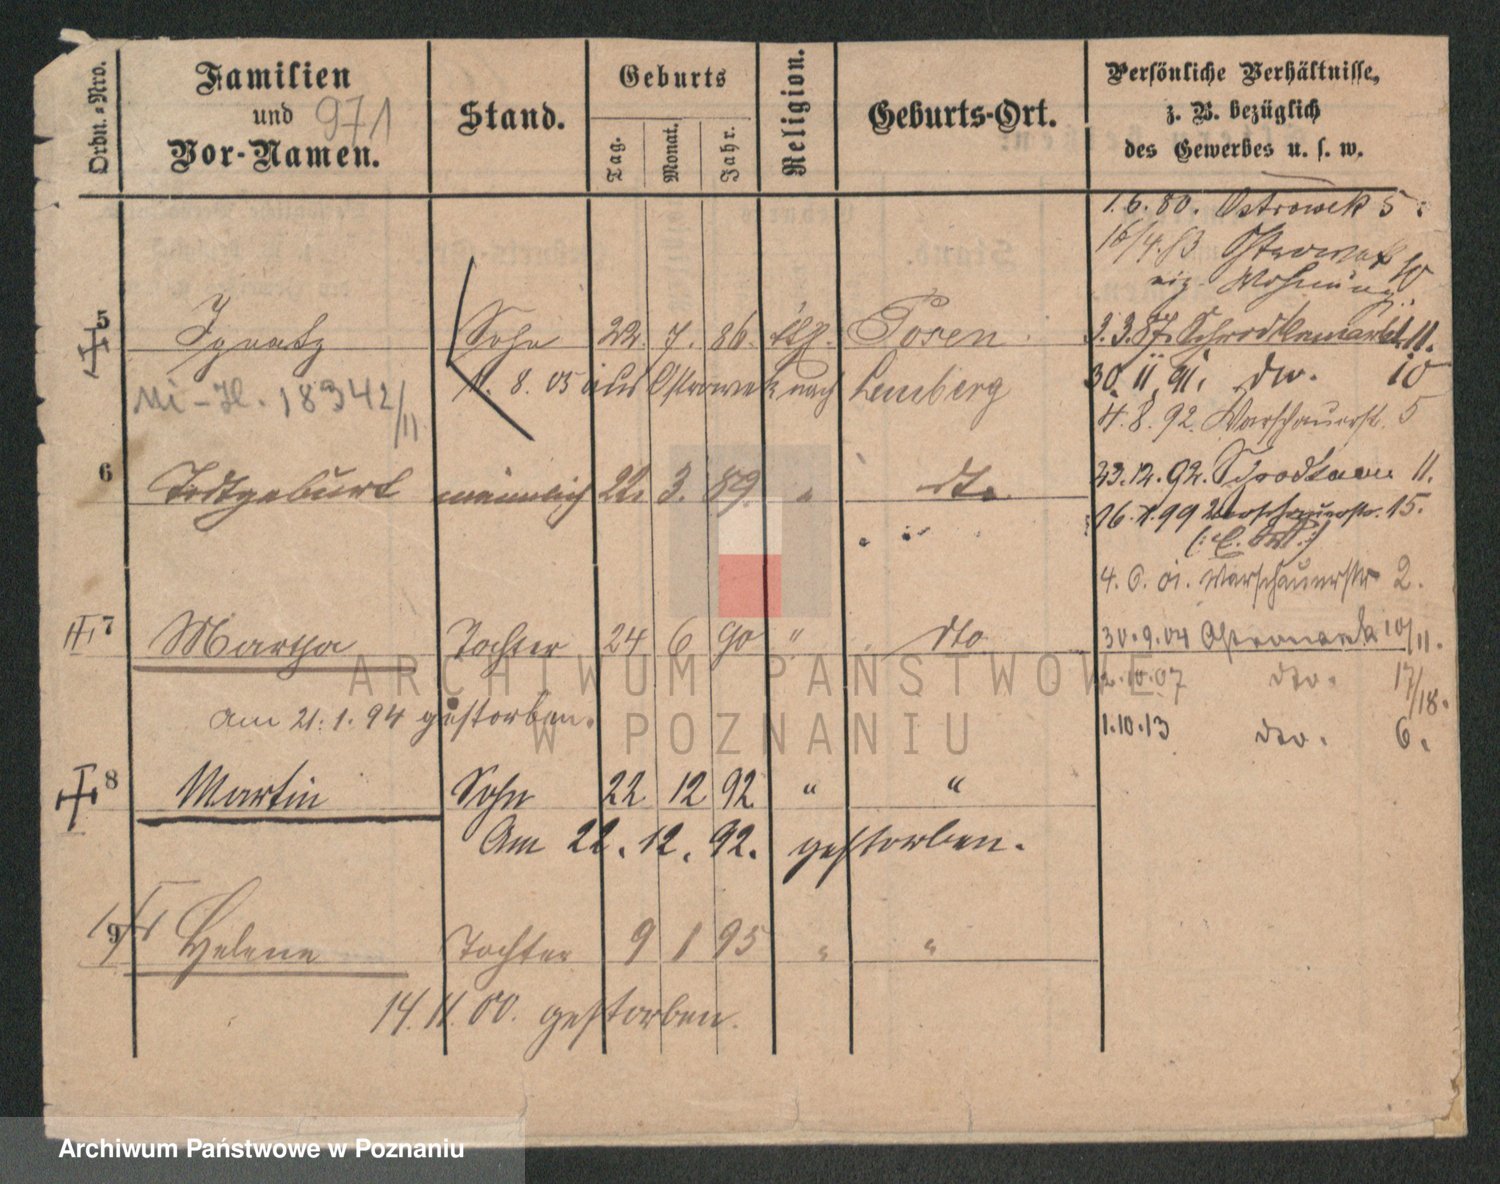 Ordn.-Nro.
Familien
und
Vor-Namen.
971
Stand.
Geburts
Tag.
Monat.
Jahr.
Religion.
Geburts-Ort.
Persönliche Verhältnisse,
z. B. bezüglich
des Gewerbes u. s. w.
1.6.80. Ostrowek 5
16/4.83 Ostrowek 10
eig. Wohnung
5 Ignatz Sohn 22. 7. 86. ktl. Posen
3.3.87. Schrodkamarkt 11.
11. 8. 05 aus Ostrowek nach Lemberg
30. 11 91. dto. 10
18342/11
4.8.92. Warschauerst. 5
6 Todtgeburt männlich 22. 3. 89. " dto
23.12.92. Schrodkam 11.
16.1.99 Warschauerstr. 15.
4.6.01. Warschauerstr 2.
7 Martha Tochter 24 6 90 " dto
30.9.04 Ostrowek 10/11.
2.10.07 dto. 17/18.
am 21.1.94 gestorben.
1.10.13 dto. 6.
8 Martin Sohn 22 12 92 " "
Am 22. 12. 92. gestorben.
9 Helene Tochter 9 1 95 " "
14.11.00. gestorben.
ARCHIWUM PAŃSTWOWE
W POZNANIU
Archiwum Państwowe w Poznaniu